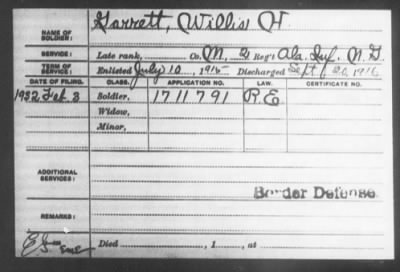 NAME OF SOLDIER: Garrett, Willis H.
SERVICE: Late rank, Co. M. 2 Reg't Ala. Inf. N. G.
TERM OF SERVICE: Enlisted July 10, 1915 Discharged Sept 20, 1916
DATE OF FILING. CLASS. APPLICATION NO. LAW. CERTIFICATE NO.
1932 Feb. 3 Soldier, 1711791 R.E
Widow,
Minor,
ADDITIONAL SERVICES:
Border Defense
REMARKS:
Died , 1 , at